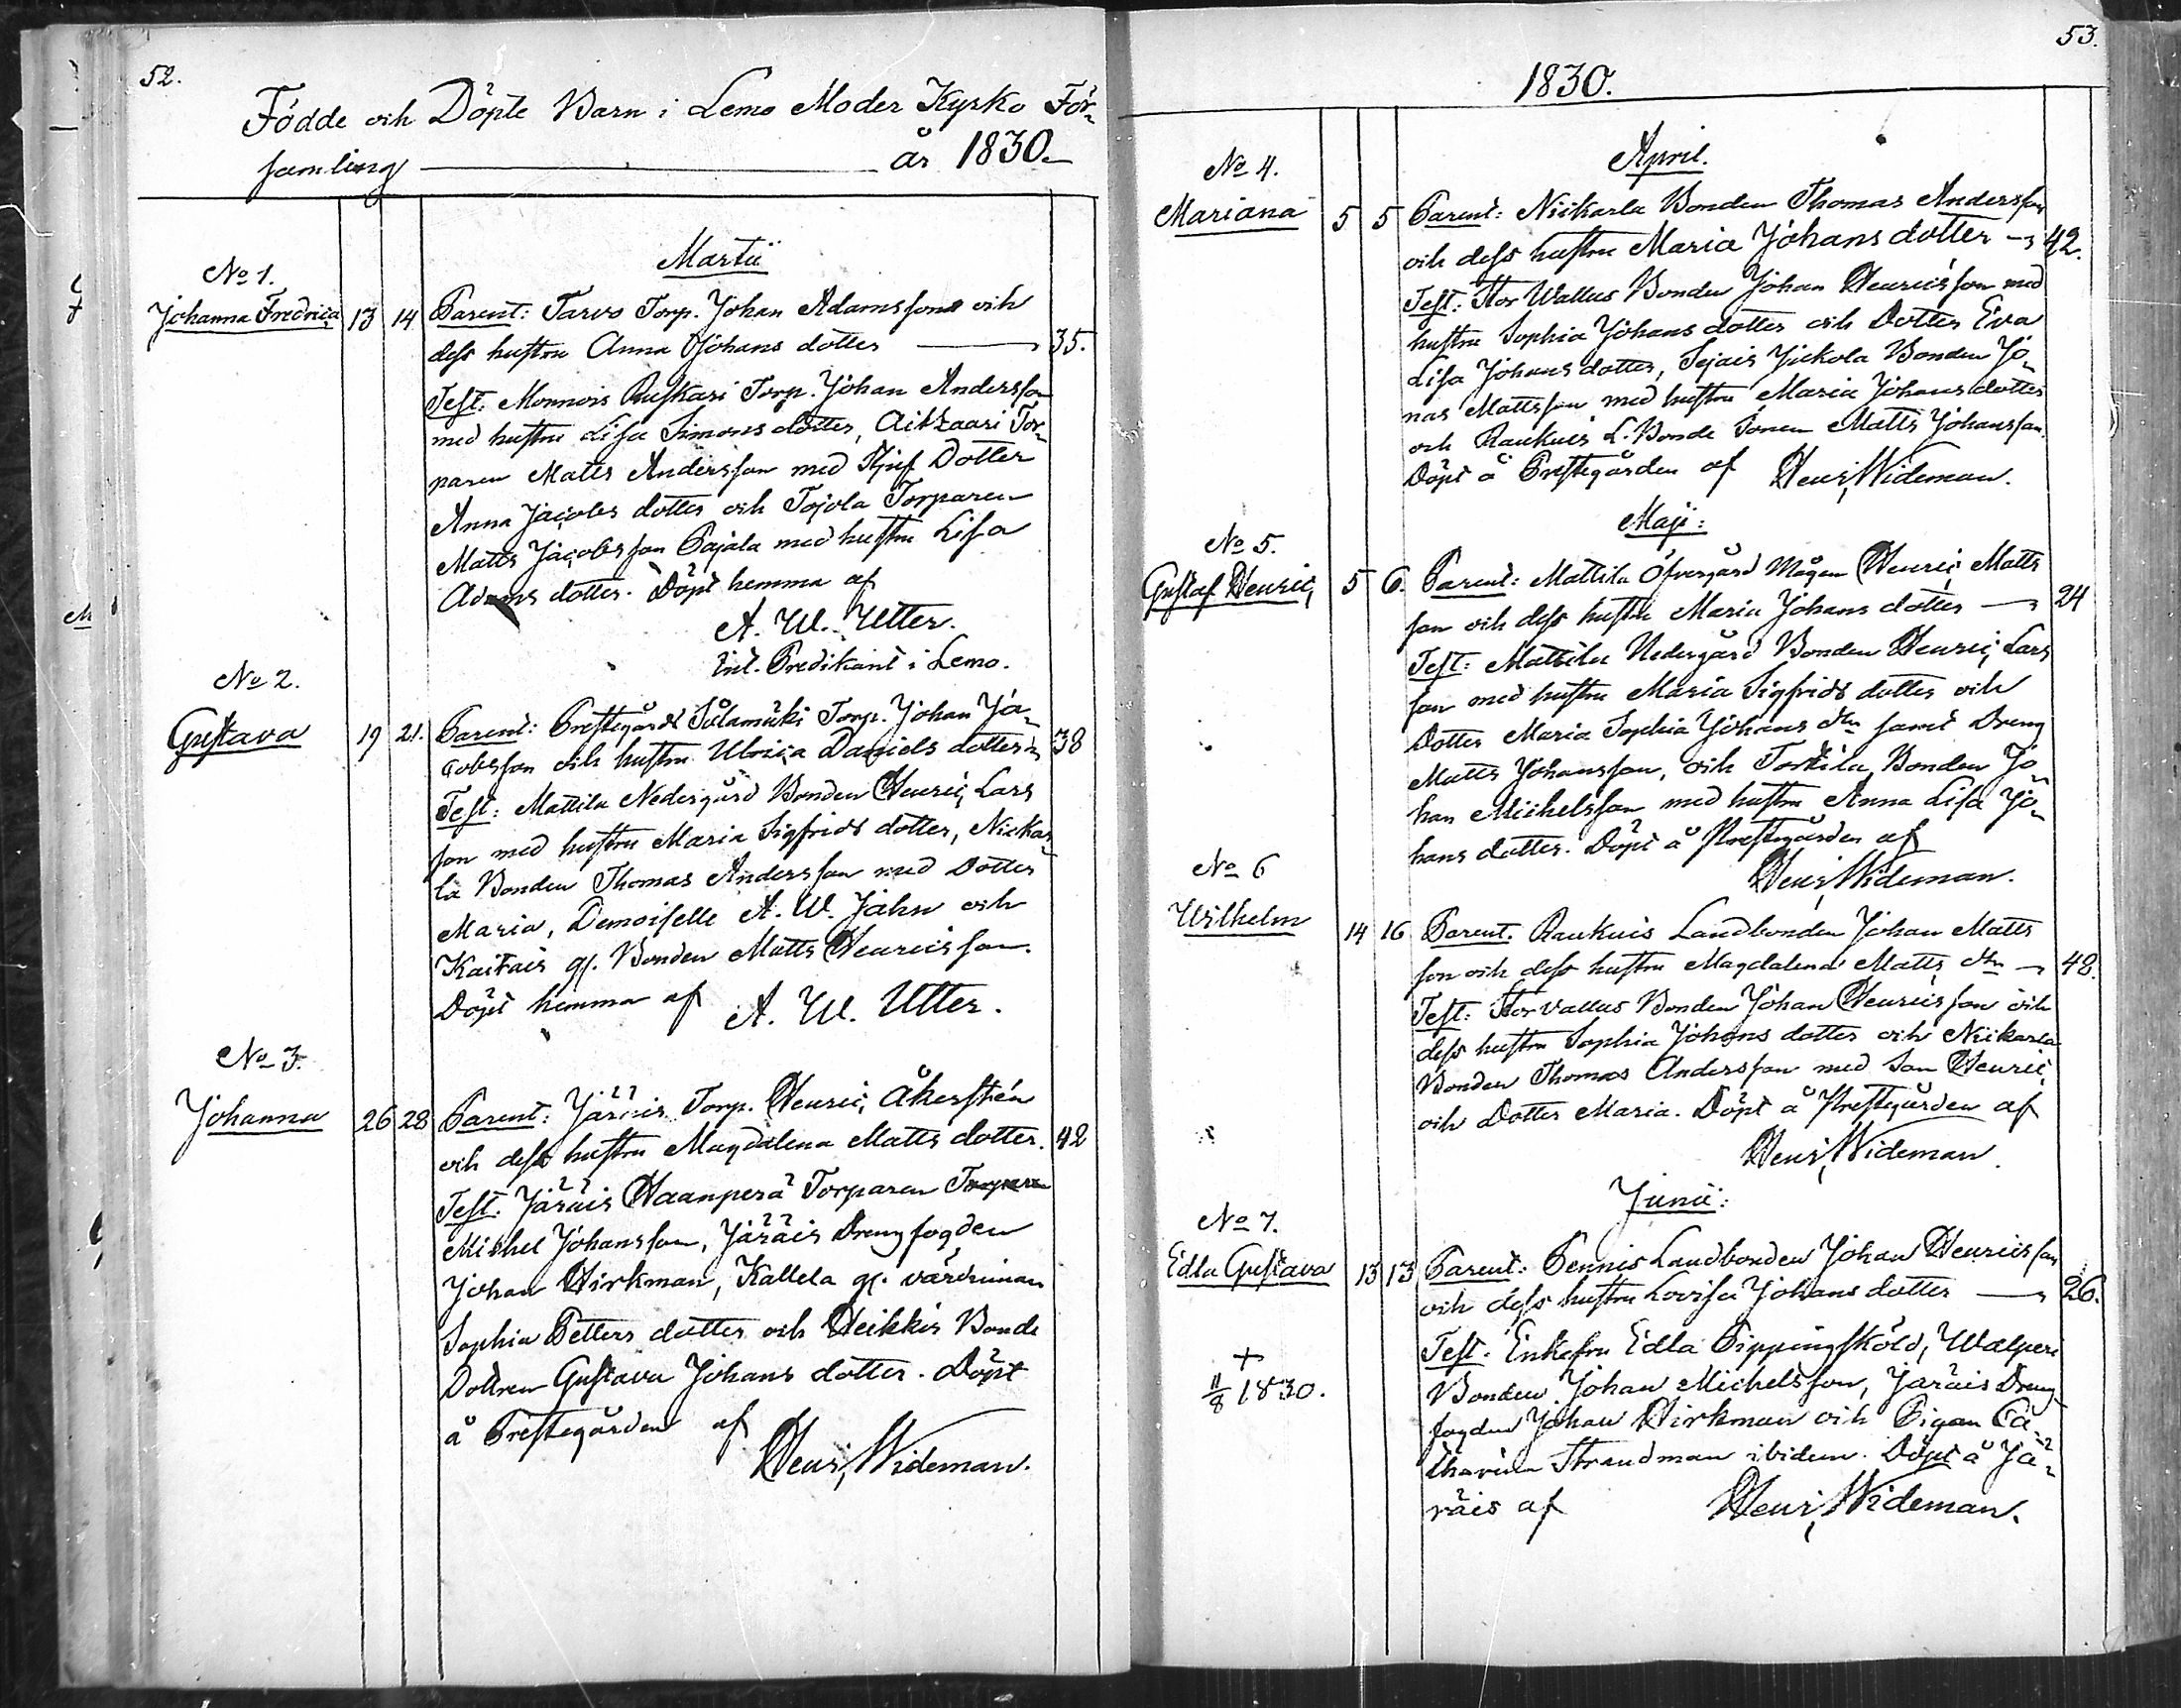 52.
Födde och Döpte Barn i Lemo Moder Kyrko För-
samling ——— år 1830.
Martii
No 1.
Johanna Fredrica 13 14 Parent: Tarvo Torp. Johan Adamsson och
dess hustru Anna Johans dotter — 35.
Test: Monnois Ruskari Torp. Johan Andersson
med hustru Lisa Simons dotter, Aitzaari Tor-
paren Matts Andersson med Stjuf Dotter
Anna Jacobs dotter och Tojola Torparen
Matts Jacobsson Pajala med hustru Lisa
Adams dotter. Döpt hemma af
A. W. Utter.
Predikant i Lemo.
No 2.
Gustava 19 21. Parent: Prestegårds Torp. Johan Ja-
cobsson och hustru Ulrica Daniels dotter 38
Test: Mattila Nedergård Bonden Henric Lars
son med hustru Maria Sigfrids dotter, Niekar-
la Bonden Thomas Andersson med Dotter
Maria, Demoiselle A. W. Jahn och
Kaitais gl. Bonden Matts Henricsson.
Döpt hemma af A. W. Utter.
No 3.
Johanna 26 28 Parent: Järäis Torp. Henric Åkerstén
och dess hustru Magdalena Matts dotter. 42
Test. Järäis Haanperä Torparen
Michel Johansson, Järäis Drengfogden
Johan Hirkman, Kallela gl. värdinnan
Sophia Petters dotter och Heikkis Bonde
Dottren Gustava Johans dotter. Döpt
å Prestegården af
Henr. Wideman.
53.
1830.
April.
No 4.
Mariana 5 5 Parent: Niikarla Bonden Thomas Andersson
och dess hustru Maria Johans dotter — 42.
Test: Stor Wallus Bonden Johan Henricsson med
hustru Sophia Johans dotter och Dotter Eva
Lisa Johans dotter, Sejais Jickola Bonden Jo-
nas Mattsson med hustru Maria Johans dotter
och Raukuis L. Bonde Sonen Matts Johansson.
Döpt å Prestegården af Henr. Wideman.
Maji:
No 5.
Gustaf Henric, 5 6. Parent: Mattila Öfvergård Mågen Henric Matts
son och dess hustru Maria Johans dotter — 24
Test: Mattila Nedergård Bonden Henric Lars
son med hustru Maria Sigfrids dotter och
Dotter Maria Sophia Johans dtr samt Dreng
Matts Johansson, och Torkila Bonden Jo-
han Michelsson med hustru Anna Lisa Jo-
hans dotter. Döpt å Prestegården af
Henr. Wideman.
No 6
Wilhelm 14 16 Parent. Raukuis Landbonden Johan Matts
son och dess hustru Magdalena Matts dtr — 48.
Test: Stor Vallus Bonden Johan Henricsson och
dess hustru Sophia Johans dotter och Niikarla
Bonden Thomas Andersson med Son Henric
och Dotter Maria. Döpt å Prestegården af
Henr. Wideman.
Junii:
No 7.
Edla Gustava 13 13 Parent: Pennis Landbonden Johan Henricsson
och dess hustru Lovisa Johans dotter — 26.
Test. Enkefru Edla Pippingsköld, Walperi
Bonden Johan Michelsson, Järäis Dreng-
fogden Johan Hirkman och Pigan Ca-
tharina Strandman ibidem. Döpt å Jä-
räis af Henr. Wideman.
+
11/8 1830.